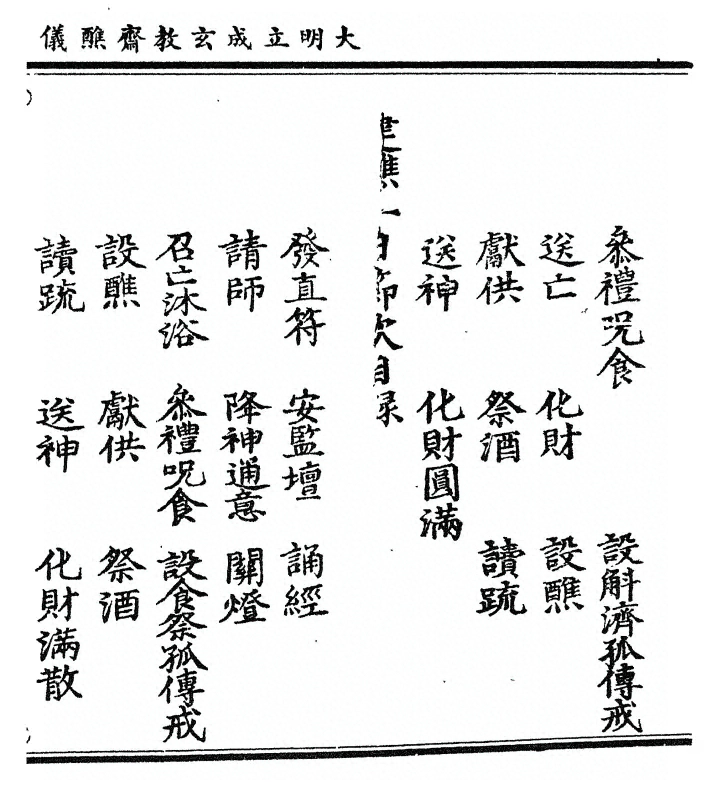 大明立成玄教齋醮儀
叅禮呪食 設斛濟孤傳戒
送亡 化財 設醮
獻供 祭酒 讀䟽
送神 化財圓滿
建醮一日節次目录
發直符 安監壇 誦經
請師 降神通意 關燈
召亡沐浴 叅禮呪食 設食祭孤傳戒
設醮 獻供 祭酒
讀䟽 送神 化財滿散